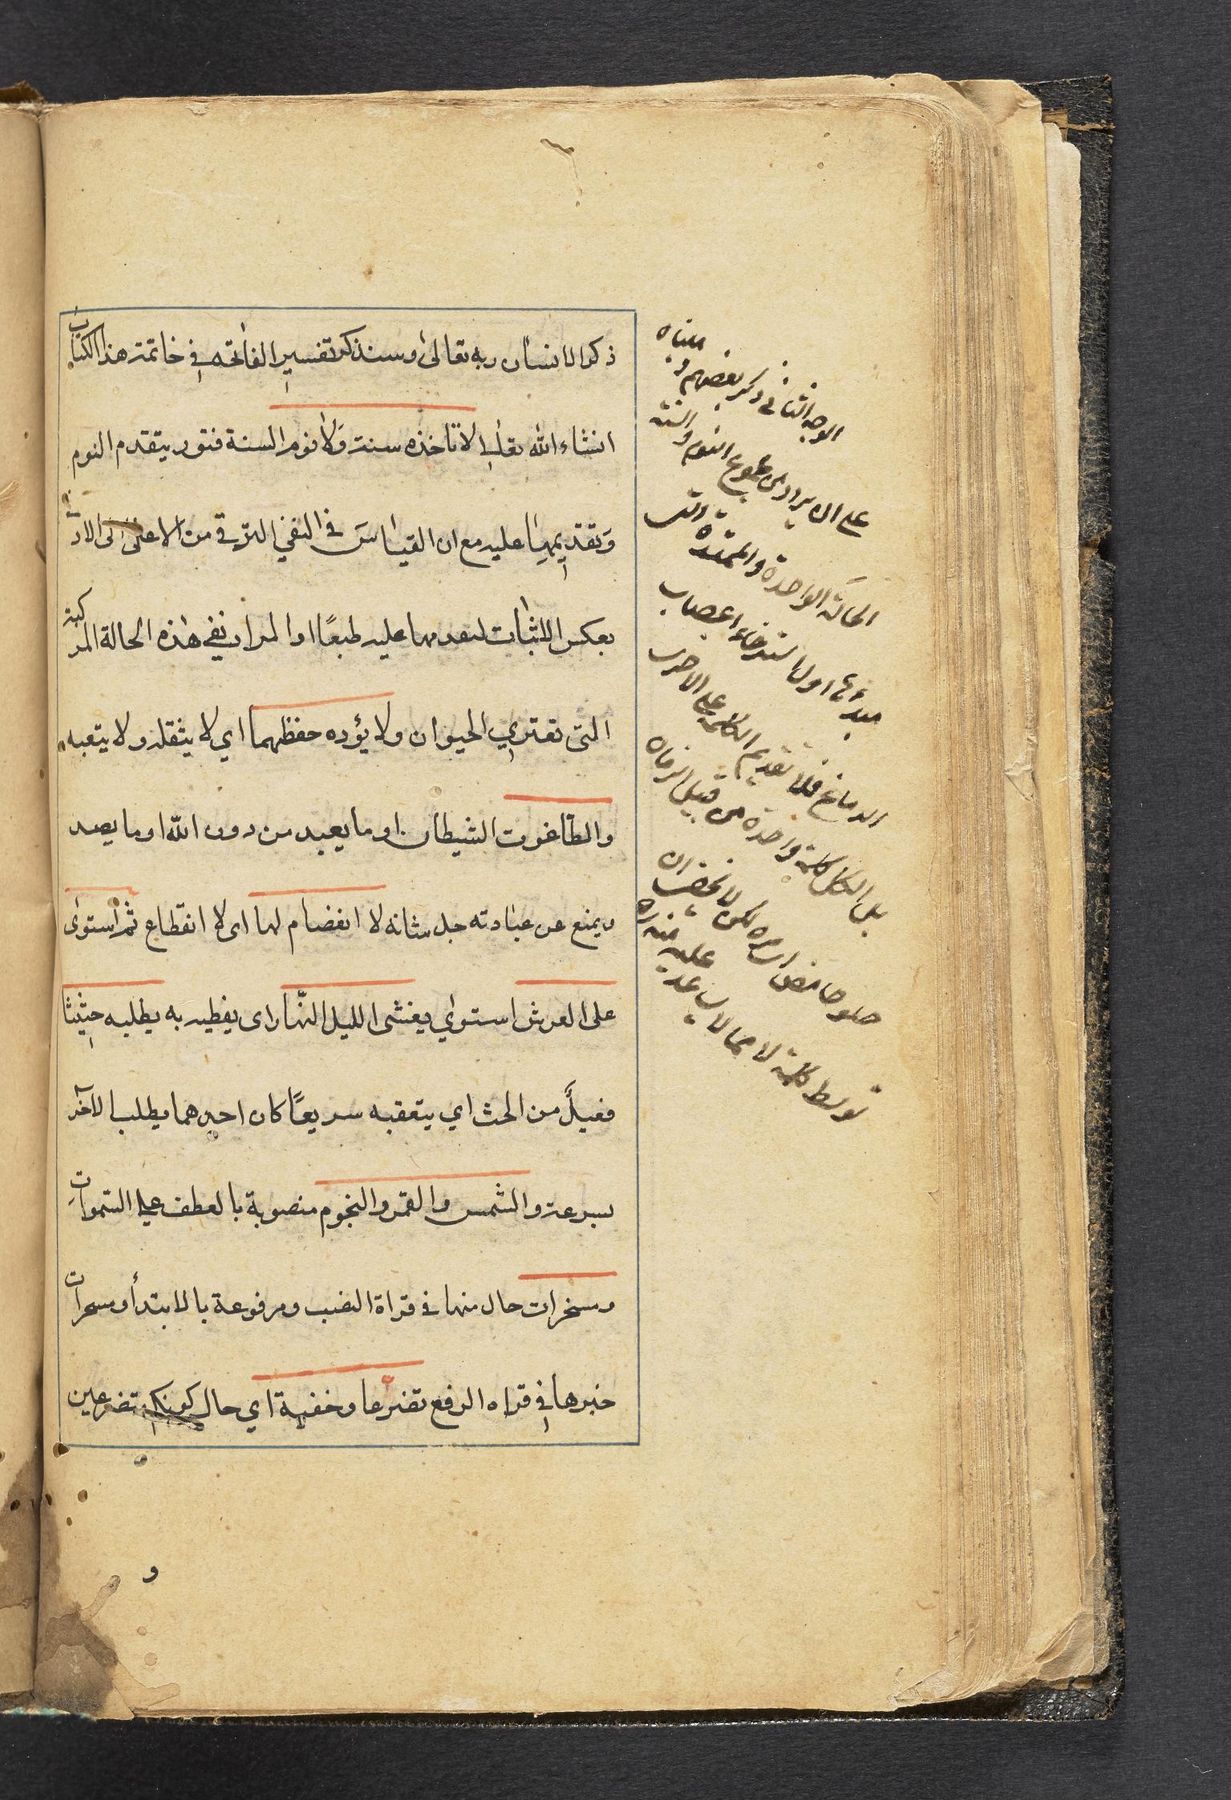 ذكر الانسان ربه تعالى وسنذكر تفسير الفاتحه في خاتمة هذا الكتاب
انشاء الله تعالى لا تاخذه سنة ولا نوم السنة فتور يتقدم النوم
وتقديمها عليه مع ان القياس في النفي الترقي من الاعلى الى الادنى
بعكس الاثبات لتقدمها عليه طبعًا او المراد نفي هذه الحالة المركبة
التي تعتري الحيوان ولا يؤده حفظهما اي لا يثقله ولا يتعبه
والطاغوت الشيطان او ما يعبد من دون الله او ما يصد
ويمنع عن عبادته جل شانه لا انفصام لها اى لا انقطاع ثم استوى
على العرش استوى يغشى الليل النّهار اى يغطيه به يطلبه حثيثا
فعيلٌ من الحث اي يتعقبه سريعًا كان احدهما يطلب الآخر
بسرعة والشمس والقمر والنجوم منصوبة بالعطف على السموات
ومسخرات حال منها في قراة النصب ومرفوعة بالابتدأ ومسخرات
خبرها في قراه الرفع تضرعا وخفية اي حال كونكم متضرعين
و
الوجه الثانى ذكر بعضهم و بناه
على ان يراد نفى مجموع النوم والسنة
الحالة الواحدة الممتدة التى
مبدءها اول استرخاء اعصاب
الدماغ فلا تقديم لكلمة على الاخرى
بل الكل كلمة واحدة من قبيل الرمان
حلو حامض
توسط كلمة لا مما لا يساعد عليه